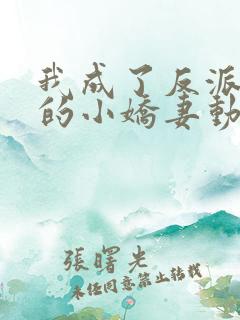 我成了反派
的小嬌妻動
張曙光
未經同意禁止轉載